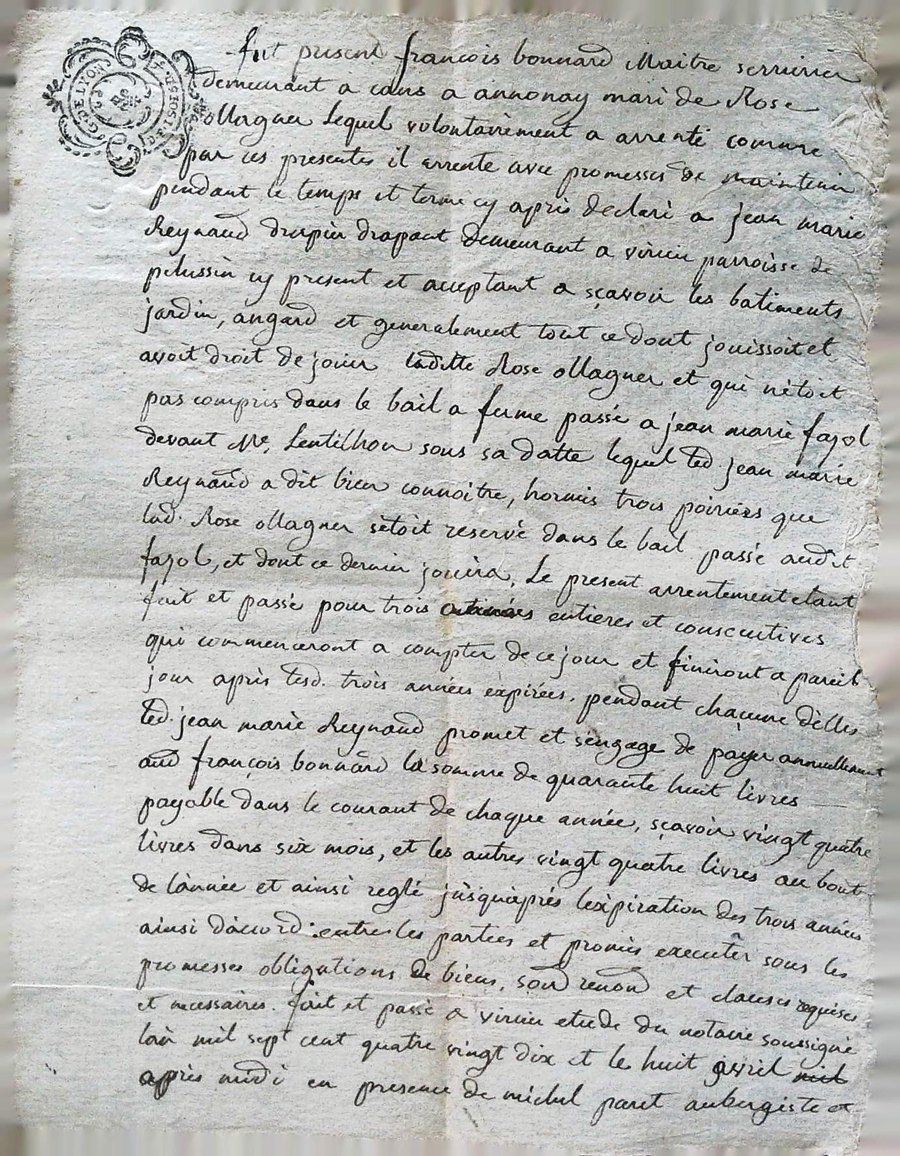 G. DE LYON
fut present françois bonnard Maitre serrurier
demeurant a cans a annonay mari de Rose
ollagner Lequel volontairement a arrenté comme
par ces presentes il arrente avec promesses de maintenir
pendant le temps et terme cy après declaré a jean marie
Reynaud drapier drapant demeurant a virieu parroisse de
pelussin cy present et acceptant a sçavoir les batiments
jardin, angard et generalement tout ce dont jouissoit et
avoit droit de jouir laditte Rose ollagner et qui nétoit
pas compris dans le bail a ferme passé a jean marie fayol
devant Me. Lentilhon sous sa datte lequel led jean marie
Reynaud a dit bien connoitre, hormis trois poiriers que
lad. Rose ollagner sétoit reservé dans le bail passé audit
fayol, et dont ce dernier jouira, Le present arrentement etant
fait et passé pour trois années entieres et consecutives
qui commenceront a compter de ce jour et finiront a pareil
jour après lesd. trois années èxpirées, pendant chacune délles
led. jean marie Reynaud promet et sèngage de payer annuellement
aud françois bonnard la somme de quarante huit livres
payable dans le courant de chaque année, sçavoir vingt quatre
livres dans six mois, et les autres vingt quatre livres au bout
de lànnée et ainsi reglé jusquàprés lèxpiration des trois années
ainsi dàccord: entre les parties et promis executer sous les
promesses obligations de biens, soud renond et clauses requises
et necessaires. fait et passé a virieu etude du notaire soussigné
làn mil sept cent quatre vingt dix et le huit avril
après midi en presence de michel paret aubergiste et